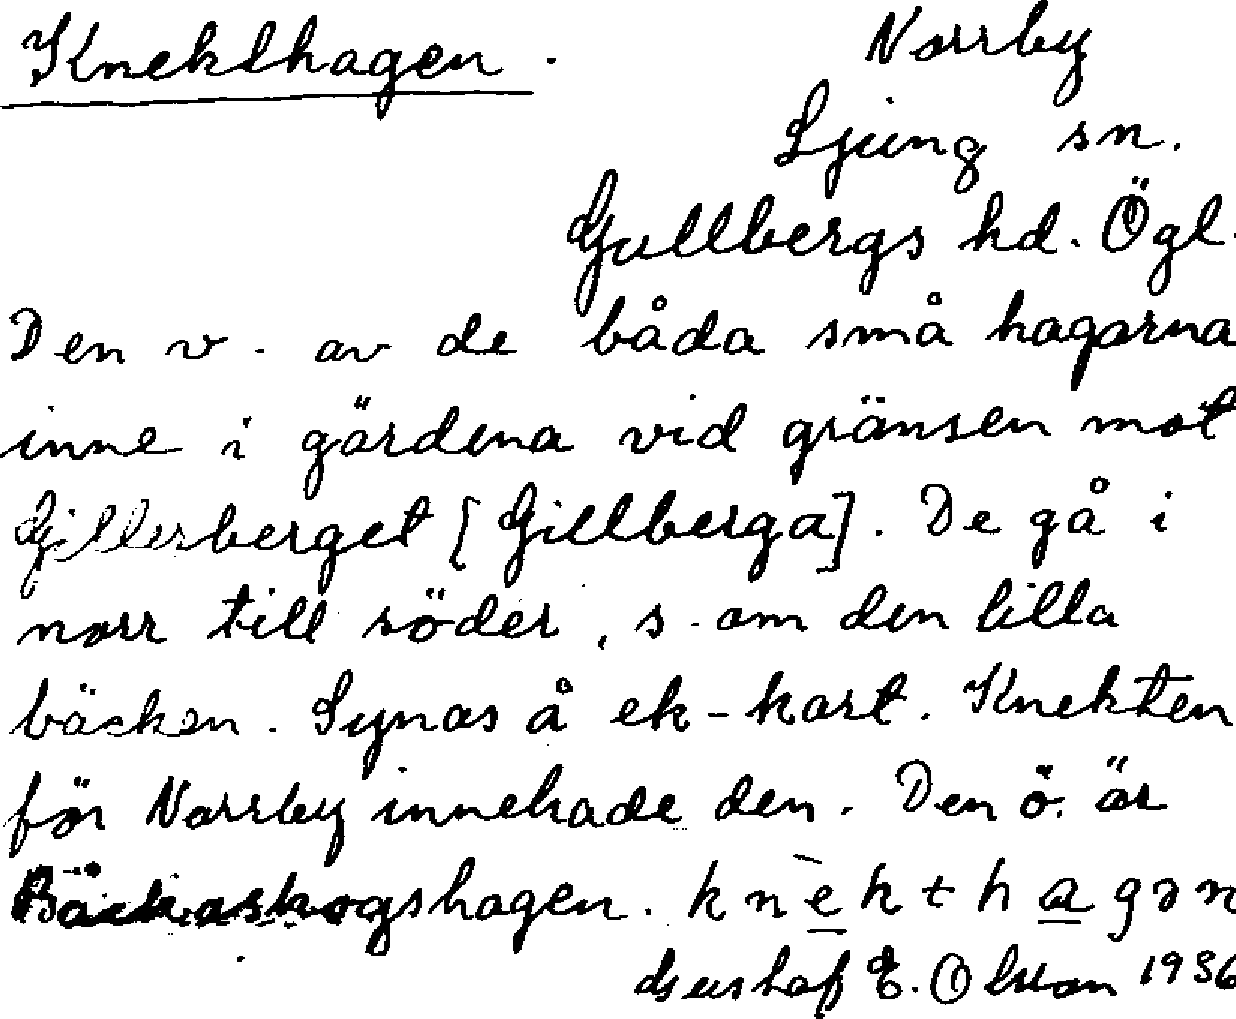 Knekthagen.
Norrby
Ljung sn.
Gullbergs hd. Ögl.
Den v. av de båda små hagarna
inne i gärdena vid gränsen mot
Gillersberget [Gillberga]. De gå i
norr till söder, s. om den lilla
bäcken. Synas å ek-kart. Knekten
för Norrby innehade den. Den ö. är
Bäckaskogshagen. knèkthagən
E. Olsson 1936